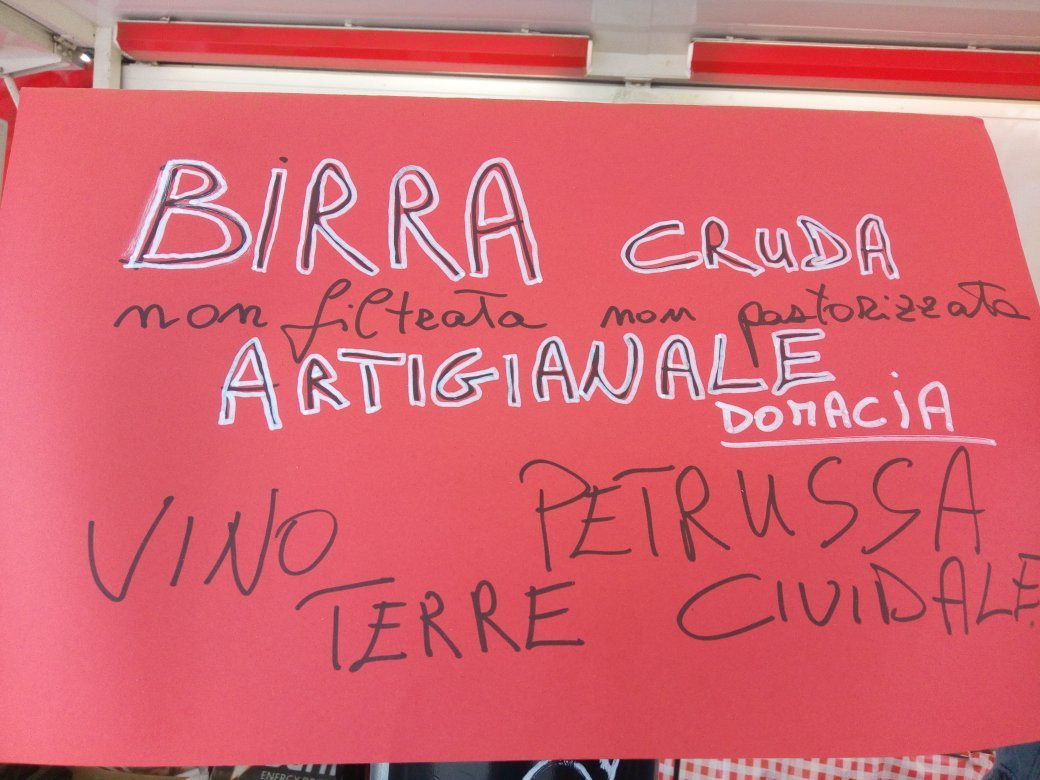 BIRRA CRUDA
non filtrata non pastorizzata
ARTIGIANALE
DOMACIA
VINO PETRUSSA
TERRE CIVIDALE